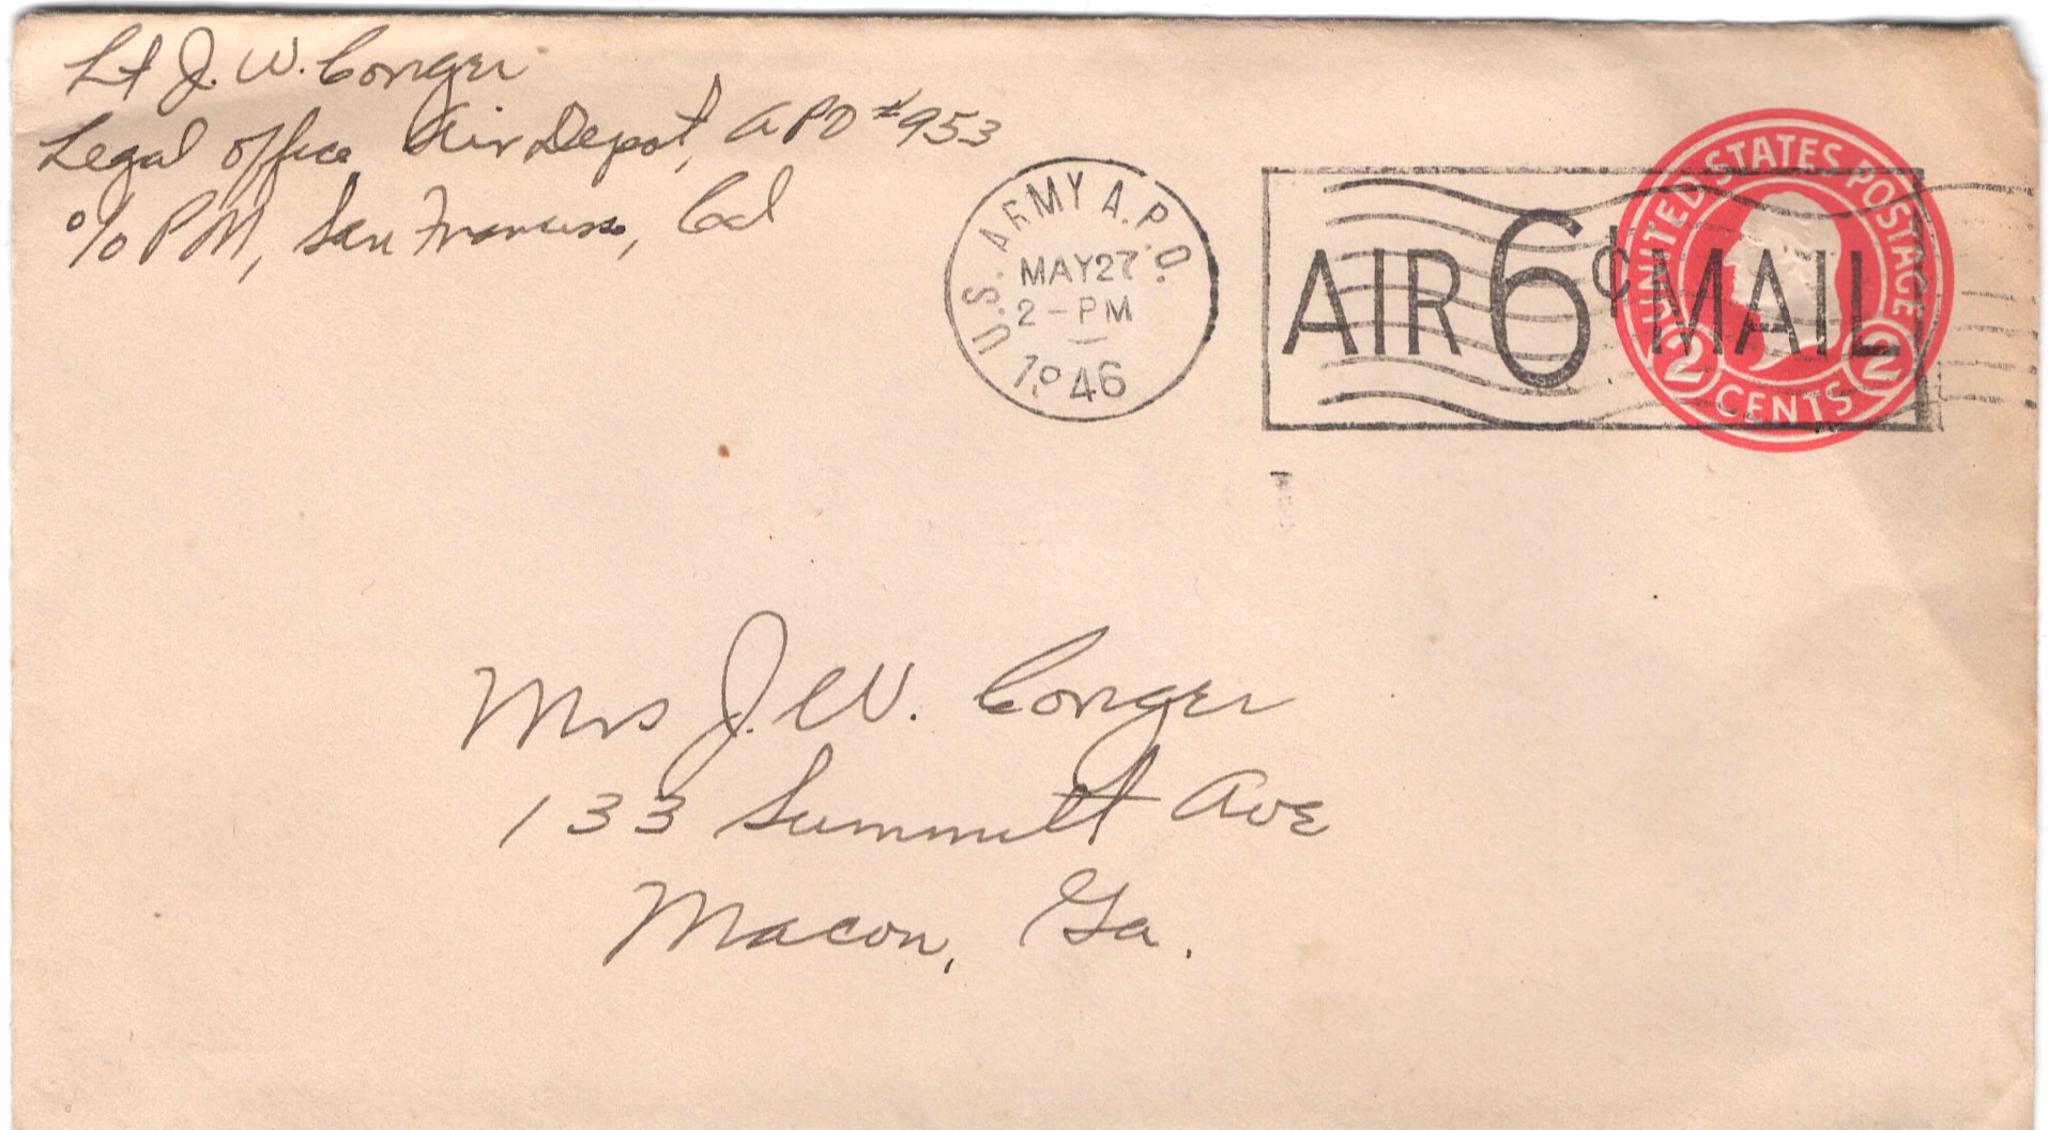 Lt J. W. Conger
Legal Office Air Depot, APO #953
% PM, San Francisco, Cal
U.S. ARMY A.P.O.
MAY 27
2-PM
1946
AIR 6¢ MAIL
UNITED STATES POSTAGE
2 CENTS 2
Mrs J. W. Conger
133 Summitt Ave
Macon, Ga.